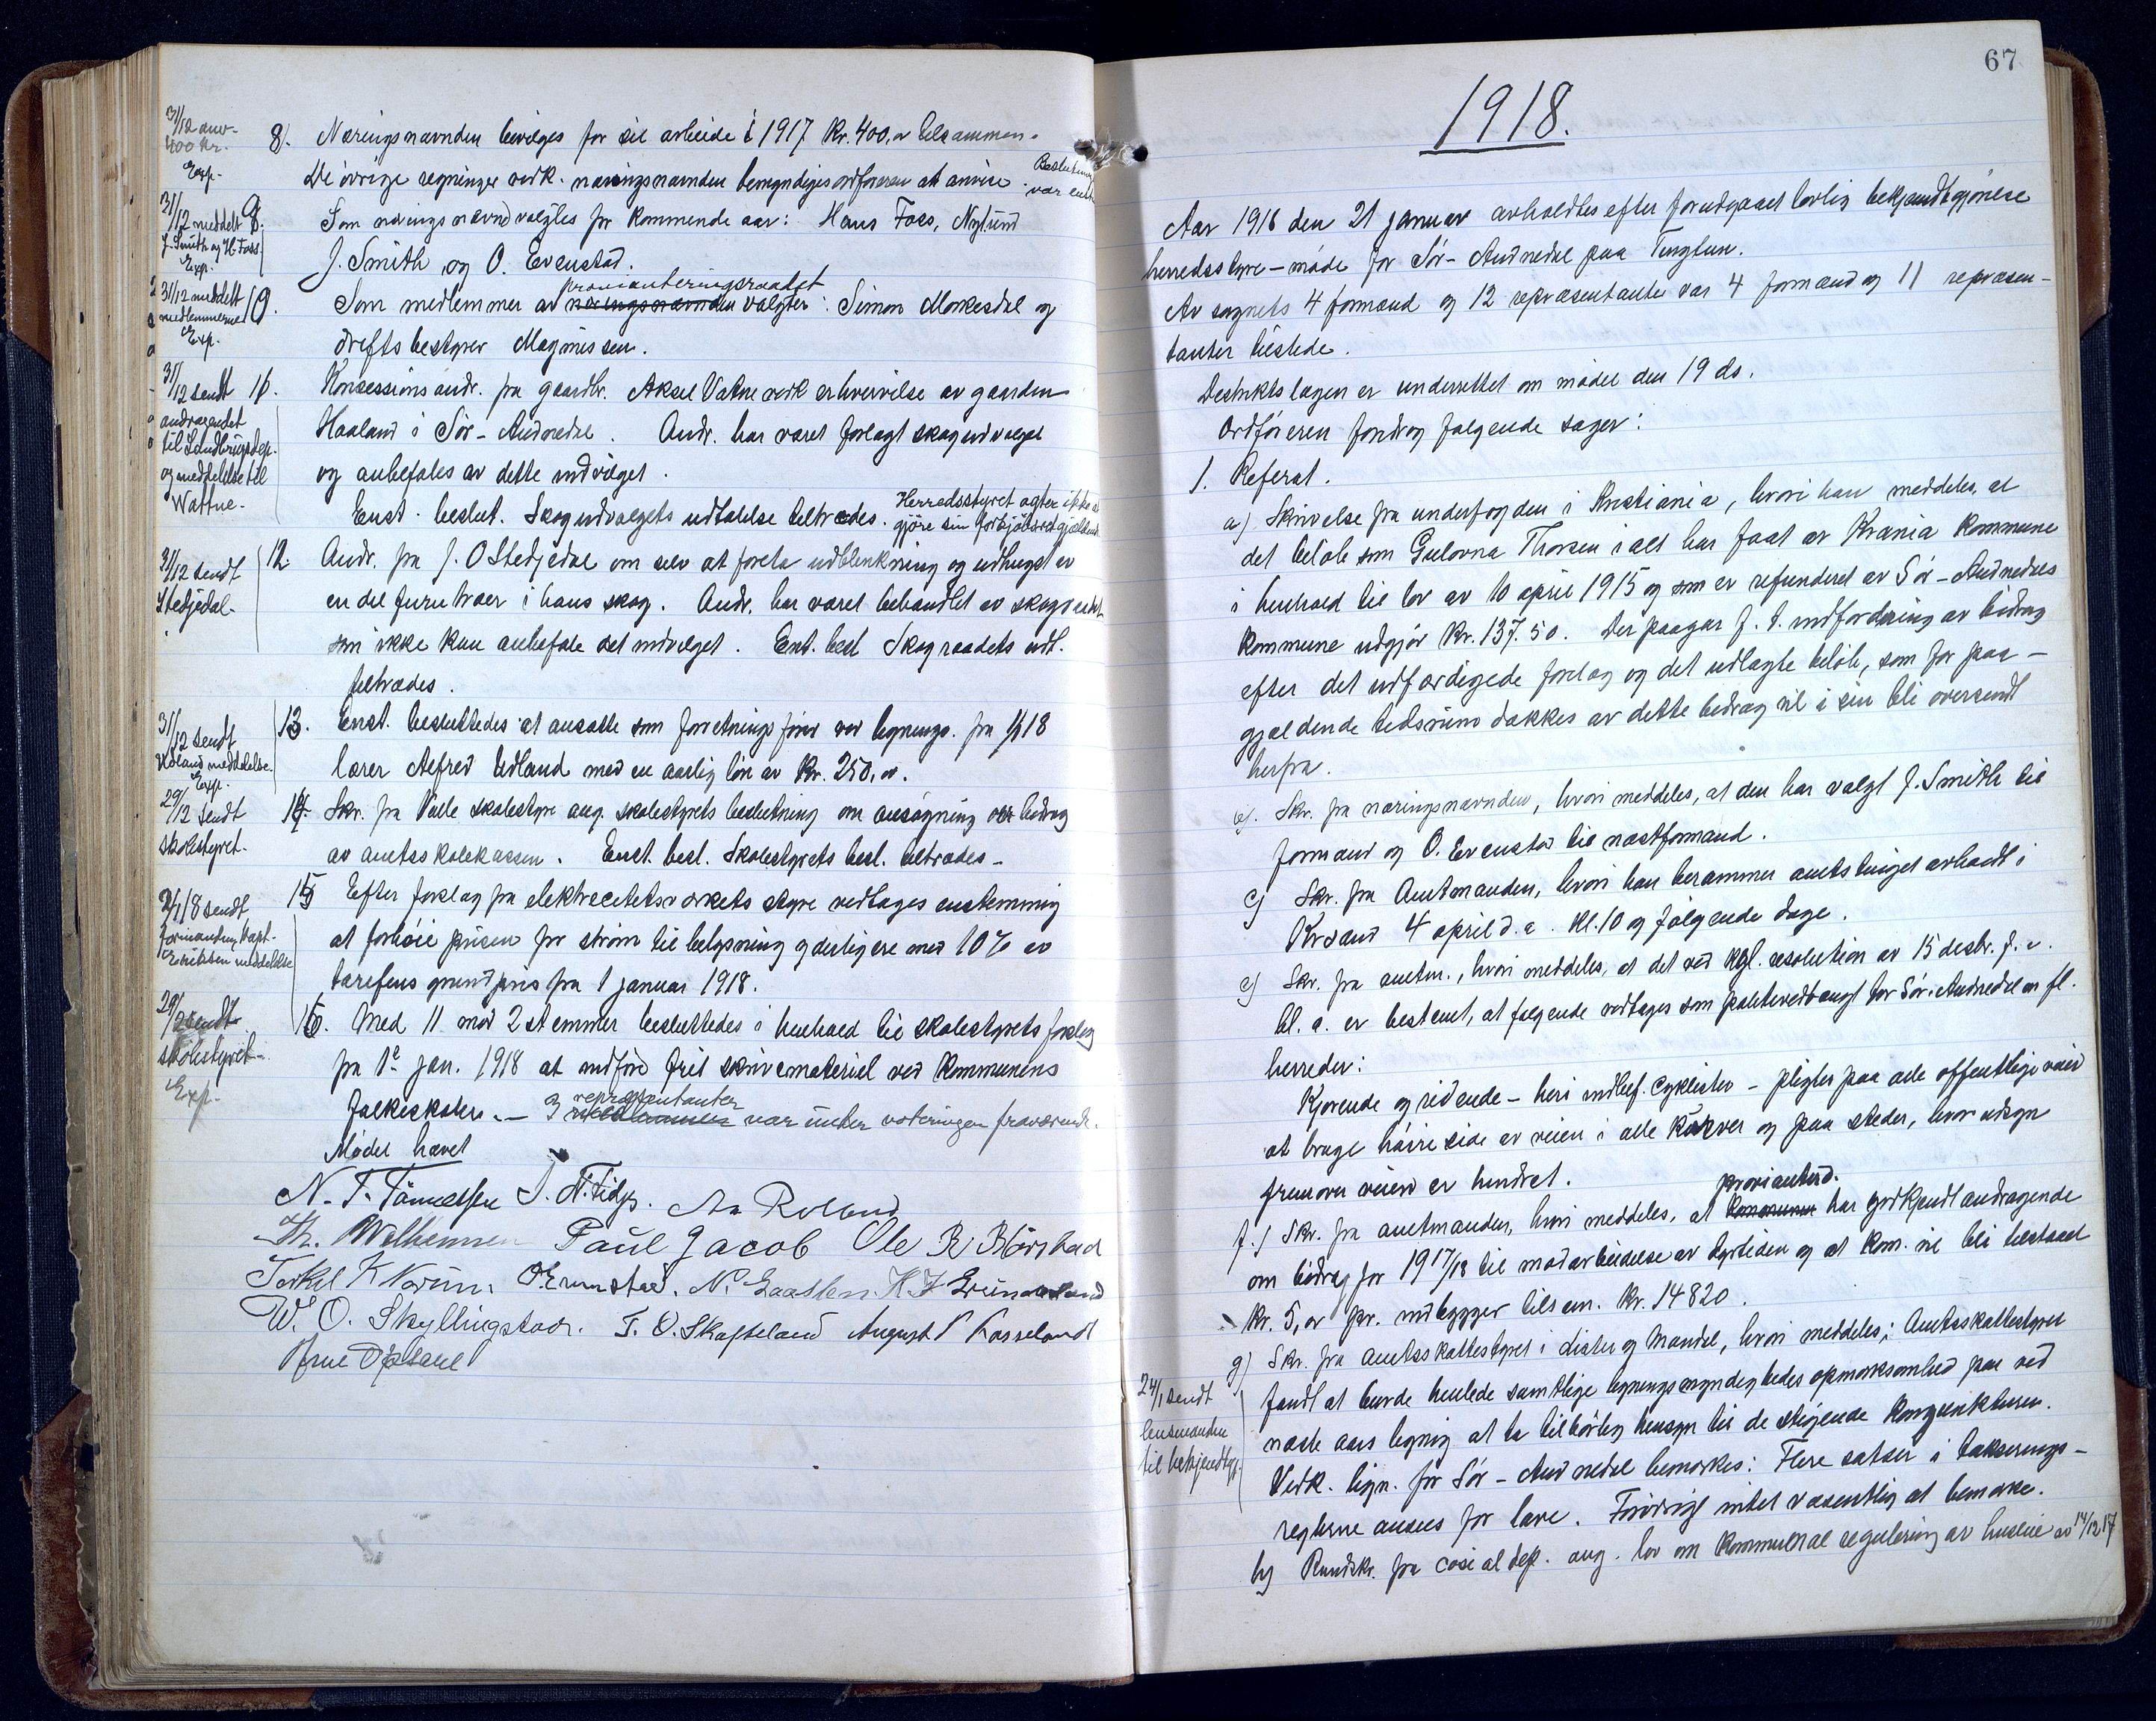 31/12 anv-
400 kr.
Exp.
8). Næringsnævnden bevilges for sit arbeide i 1917 Kr. 400,oo tilsammen.
De övrige regninger vedk. næringsnævnden bemyndiges ordføreren at anvise. Beslutningen var enst.
31/12 meddelt
J. Smith og H. Foss
Exp.
9. Som næringsnævnd valgtes for kommende aar: Hans Foss, Nyglund
J. Smith og O. Evenstad.
31/12 meddelt
medlemmerne
Exp.
10. Som medlemmer av næringsnævnden provianteringsraadet valgtes: Simon Monkesdal og
driftsbestyrer Magnussen.
31/12 sendt
andragendet
til Landbruksdep.
og meddelelse til
Wattne.
11. Konsessionsandr. fra gaardbr. Aksel Vatne vedk erhvervelse av gaarden
Haaland i Sör-Audnedal. Andr. har været forlagt skogudvalget
og anbefales av dette indvilget.
Enst. beslut. Skogudvalgets udtalelse tiltrædes. Herredsstyret agter ikke at
gjöre sin forkjöbsret gjældende
31/12 sendt
Stedjedal.
12. Andr. fra J. O Stedjedal om selv at foreta udblinkning og udhugst av
en del furutrær i hans skog. Andr. har været behandlet av skograadet
som ikke kan anbefale det indvilget. Enst. besl Skograadets udt.
tiltrædes.
31/12 sendt
Udland meddelelse.
Exp.
13. Enst. besluttedes at ansætte som forretningsförer ved lignings. fra 1/1 18
lærer Alfred Udland med en aarlig lön av Kr. 250,oo.
29/12 sendt
skolestyret.
14. Skr. fra Valle skolestyre ang. skolestyrets beslutning om ansögning om bidrag
av amtsskolekassen. Enst. besl. Skolestyrets besl. tiltrædes-
2/1 18 sendt
formanden, kapt.
Eriksen meddelelse
15 Efter forslag fra elektrecitetsverkets styre vedtages enstemmig
at forhöie prisen for ström til belysning yderligere med 10% av
tarefens grundpris fra 1 januar 1918.
29/12 sendt
skolestyret.
Exp.
16. Med 11 mod 2 stemmer besluttedes i henhold til skolestyrets forslag
fra 1e jan. 1918 at indföre frit skrivemateriel ved kommunens
folkeskoler.- 3 repræsentanter var under voteringen fraværende.
Mödet hævet
N. T. Tönnessen J. N. Fidje. Aa Roland
Th. Wilhemsen Paul Jacob Ole B Börstad
Torkel K Norum. O Evenstad. N. Gaasten. H. J Grunaasland
W. O. Skyllingstad. T. O. Skofteland August P Kosseland
Arne Opsahl
67
1918.
Aar 1918 den 21 januar avholdtes efter forudgaaet lovlig bekjendtgjörelse
herredsstyre-möde for Sör-Audnedal paa Tingtun.
Av sognets 4 formænd og 12 repræsentanter var 4 formænd og 11 repræsen-
tanter tilstede.
Destriktslægen er underrettet om mödet den 19 ds.
Ordföreren fordrog fölgende sager:
1. Referat.
a) Skrivelse fra underfogden i Kristiania, hvori han meddeler, at
det belöb som Gulovna Thorsen ialt har faat av Krania kommune
i henhold til lov av 10 april 1915 og som er refunderet av Sör-Audnedals
kommune udgjör Kr. 137.50. Der paagaar f. t. indfordring av bidrag
efter det udfærdigede forelæg og det udlagte belöb, som for paa-
gjældende tidsrum dækkes av dette bidrag vil i sin tid bli oversendt
herfra.
b). Skr. fra næringsnævnden, hvori meddeles, at den har valgt J. Smith til
formand og O. Evenstad til næstformand.
c) Skr. fra Amtmanden, hvori han berammer amtstinget avholdt i
Krsand 4 april d. a. kl. 10 og fölgende dage.
e) Skr. fra amtm., hvori meddeles, at det ved kgl. resolution av 15 desbr. f. a.
bl. a. er bestemt, at følgende vedtages som politivedtægt for Sör-Audnedal m fl.
herreder:
Kjörende og ridende - heri indbef. cyklister - pligter paa alle offentlige veier
at bruge höire side av veien i alle kurver og paa steder, hvor udsyn
fremover veien er hindret.
f.) Skr. fra amtmanden, hvori meddeles, at kommunen proviantrd. har godkjendt andragende
om bidrag for 1917/18 til modarbeidelse av dyrtiden og at kom. vil bli tilstaaet
kr. 5,oo pr. indbygger tilsam. kr. 14820.
g) Skr. fra amtsskattestyret i Lister og Mandal, hvori meddeles: Amtsskattestyret
24/1 sendt
lensmanden
til bekjendtgj.
fandt at burde henlede samtlige ligningsmyndigheders opmerksomhed paa ved
næste aars ligning at ta tilbörlig hensyn til de stigende konjunkturer.
Vedk. lign. for Sör-Audnedal bemærkes: Flere satser i takserings-
reglerne ansees for lave. Forövrigt intet væsentlig at bemærke.
h) Rundskr. fra Sosialdep. ang. lov om kommunal regulering av husleie av 14/12 17